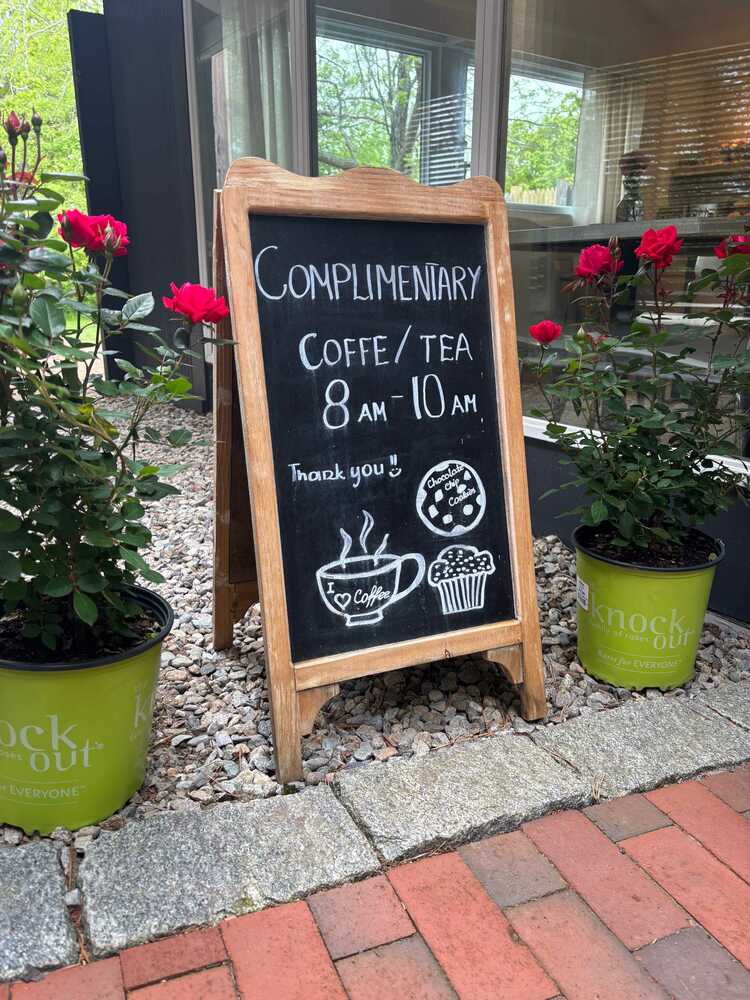 COMPLIMENTARY
COFFE / TEA
8 AM - 10 AM
Thank you!!
Chocolate
Chip
Cookies
I ♡ Coffee
knock
out
family of roses
Roses for EVERYONE™
ock
out
roses
for EVERYONE™